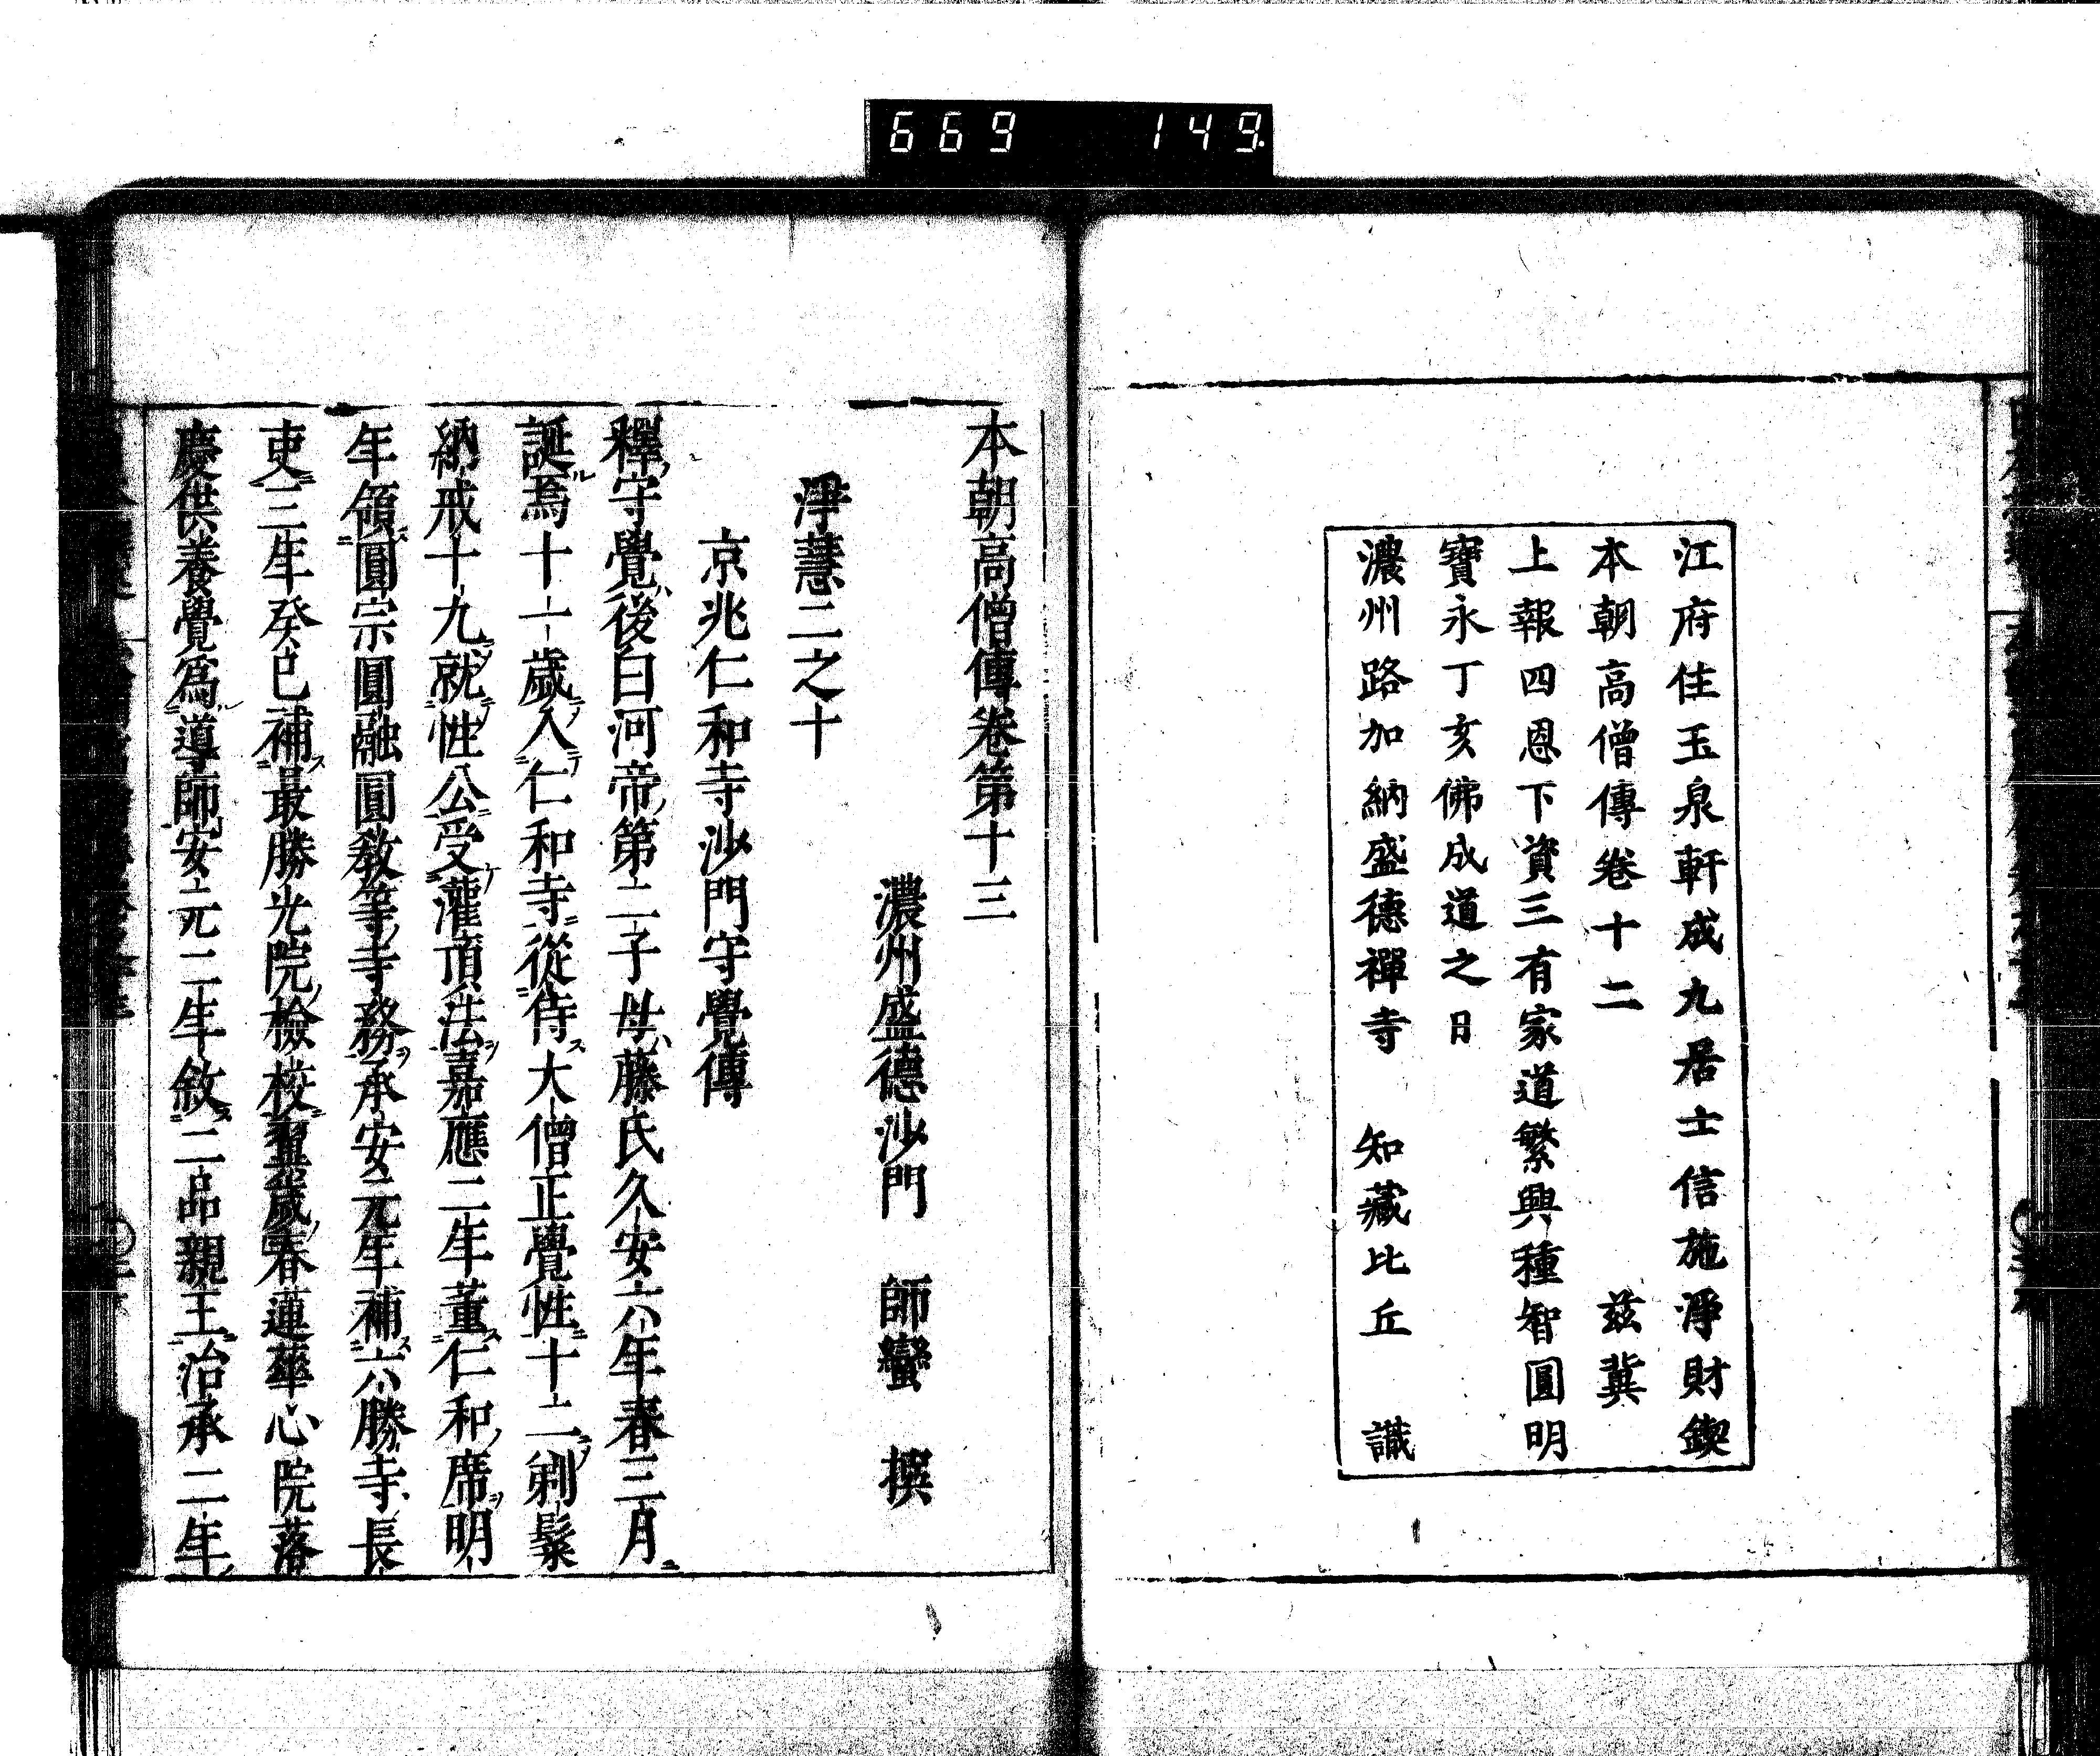 669 149
江府住玉泉軒成九居士信施淨財鍥
本朝高僧傳卷十二 兹冀
上報四恩下資三有家道繁興種智圓明
寶永丁亥佛成道之日
濃州路加納盛德禪寺 知藏比丘 識
本朝高僧傳卷第十三
濃州盛德沙門 師蠻 撰
淨慧二之十
京兆仁和寺沙門守覺傳
釋守覺後白河帝第二子母藤氏久安六年春三月
誕焉十一歲入仁和寺從侍大僧正覺性十二剃髮
納戒十九就性公受灌頂法嘉應二年董仁和席明
年領圓宗圓融圓教等寺務承安元年補六勝寺長
吏三年癸巳補最勝光院檢校翌歲春蓮華心院落
慶供養覺爲導師安元二年敘二品親王治承二年